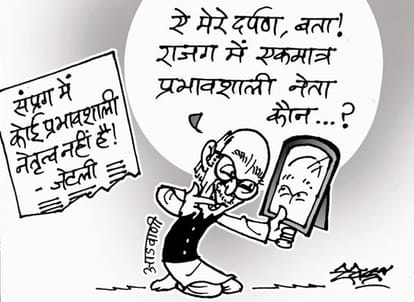 संप्रग में
कोई प्रभावशाली
नेतृत्व नहीं है!
- जेटली
ऐ मेरे दर्पण, बता!
राजग में एकमात्र
प्रभावशाली नेता
कौन...?
आडवाणी